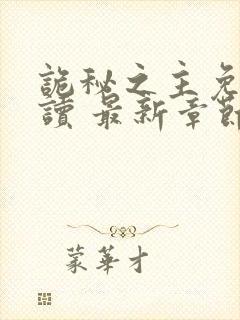 詭秘之主免
讀 最新章節
蒙華才